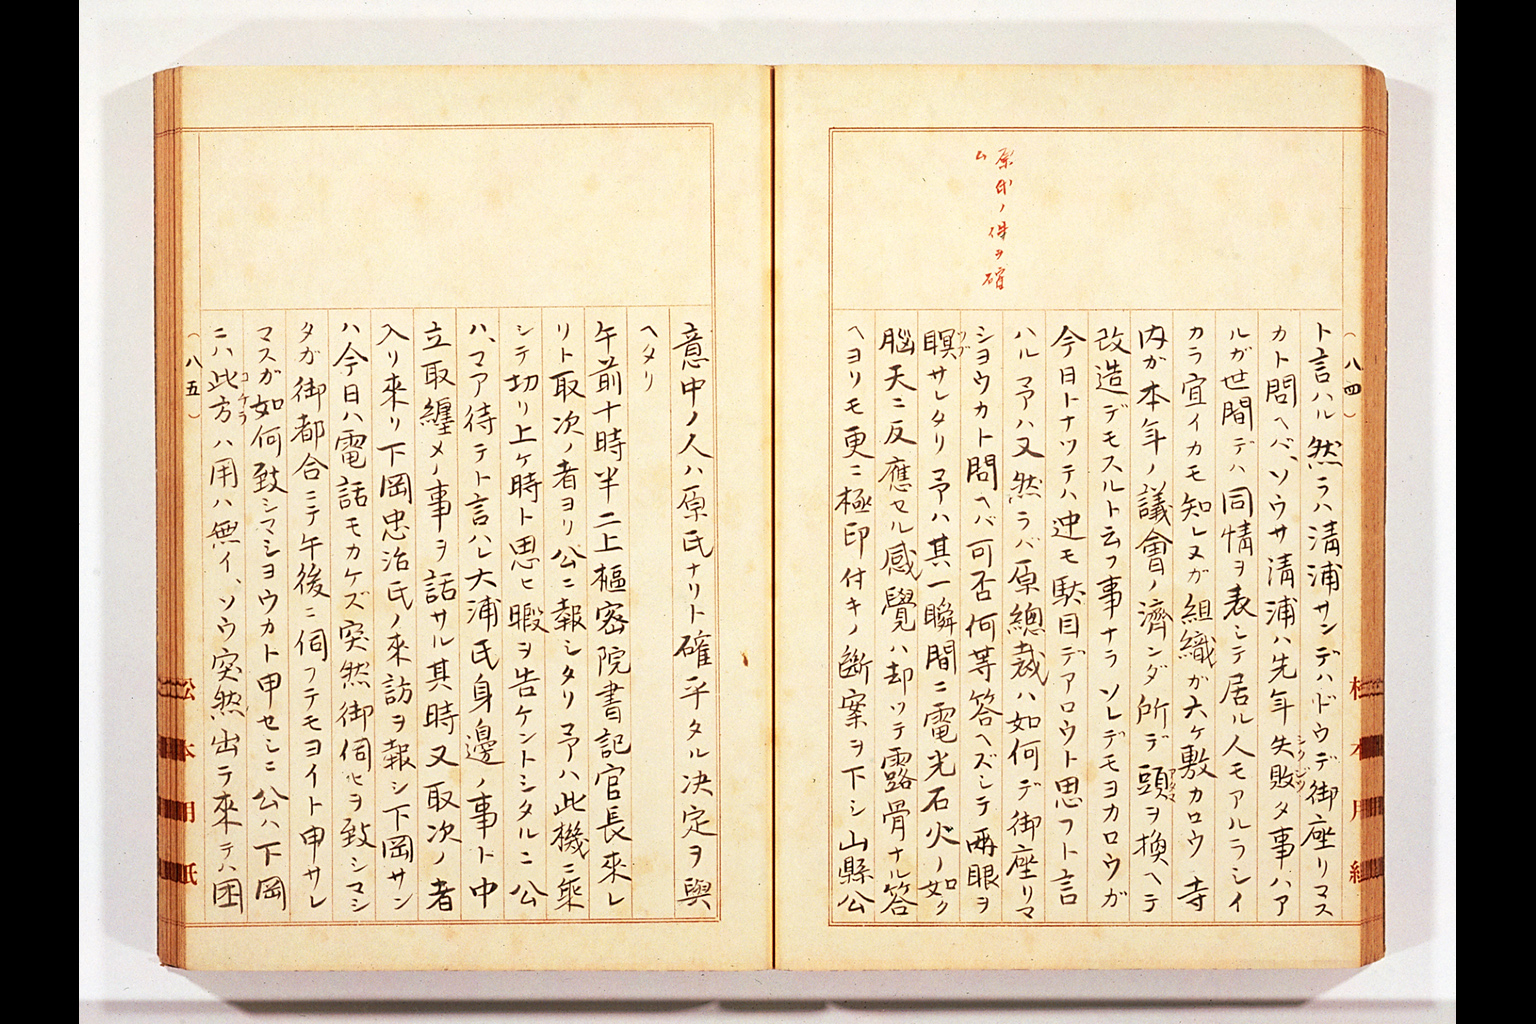 原氏ノ件ヲ確
ム
(八四)
ト言ハル然ラハ清浦サンデハドウデ御座リマス
カト問ヘバ、ソウサ清浦ハ先年失敗タ事ハア
ルガ世間デハ同情ヲ表シテ居ル人モアルラシイ
カラ宜イカモ知レヌガ組織ガ六ケ敷カロウ寺
内ガ本年ノ議會ノ濟ンダ所デ頭ヲ換ヘテ
改造デモスルト云フ事ナラソレデモヨカロウガ
今日トナツテハ迚モ駄目デアロウト思フト言
ハル予ハ又然ラバ原總裁ハ如何デ御座リマ
シヨウカト問ヘバ可否何等答ヘズシテ両眼ヲ
瞑サレタリ予ハ其一瞬間ニ電光石火ノ如ク
腦天ニ反應セル感覺ハ却ツテ露骨ナル答
ヘヨリモ更ニ極印付キノ斷案ヲ下シ山縣公
松本用紙
意中ノ人ハ原氏ナリト確乎タル決定ヲ與
ヘタリ
午前十時半二上樞密院書記官長來レ
リト取次ノ者ヨリ公ニ報シタリ予ハ此機ニ乘
シテ切リ上ケ時ト思ヒ暇ヲ告ケントシタルニ公
ハ、マア待テト言ハレ大浦氏身邊ノ事ト中
立取纒メノ事ヲ話サル其時又取次ノ者
入リ來リ下岡忠治氏ノ來訪ヲ報シ下岡サン
ハ今日ハ電話モカケズ突然御伺ヒヲ致シマシ
タガ御都合ニテ午後ニ伺フテモヨイト申サレ
マスガ如何致シマシヨウカト申セシニ公ハ下岡
ニハ此方ハ用ハ無イ、ソウ突然出テ來テハ困
(八五)
松本用紙